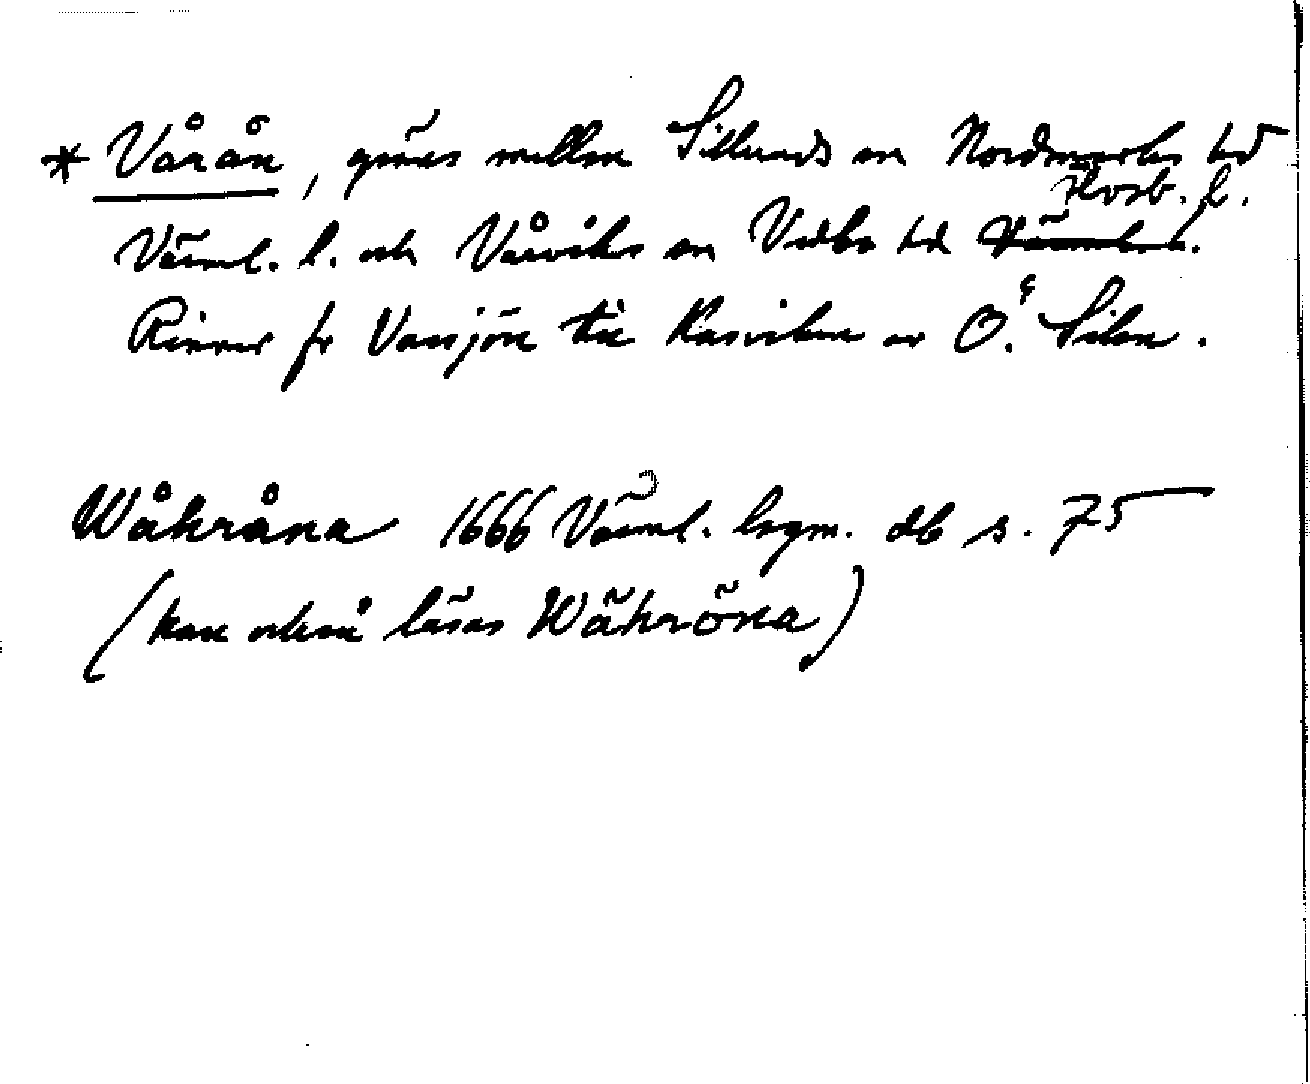 * Vårån, gräns mellan Sillerud sn Nordmarks hd
Älvsb. l.
Värml. l. och Vårviks sn Vedbo hd Värml. l.
Rinner fr Vassjön till Kasviken av Ö. Silen.
Wåhråna 1666 Värml. lsgm. db s. 75
(kan också läsas Währöna)